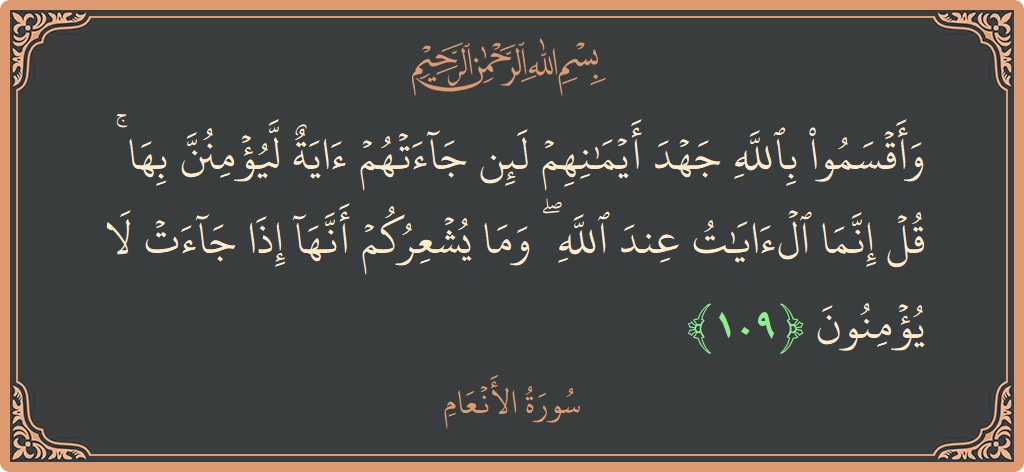 بِسْمِ اللهِ الرَّحْمٰنِ الرَّحِيْمِ
وَأَقۡسَمُواْ بِٱللَّهِ جَهۡدَ أَيۡمَٰنِهِمۡ لَئِن جَآءَتۡهُمۡ ءَايَةٌ لَّيُؤۡمِنُنَّ بِهَاۚ
قُلۡ إِنَّمَا ٱلۡءَايَٰتُ عِندَ ٱللَّهِۖ وَمَا يُشۡعِرُكُمۡ أَنَّهَآ إِذَا جَآءَتۡ لَا
يُؤۡمِنُونَ ﴿١٠٩﴾
سُورَةُ الأَنۡعَامِ